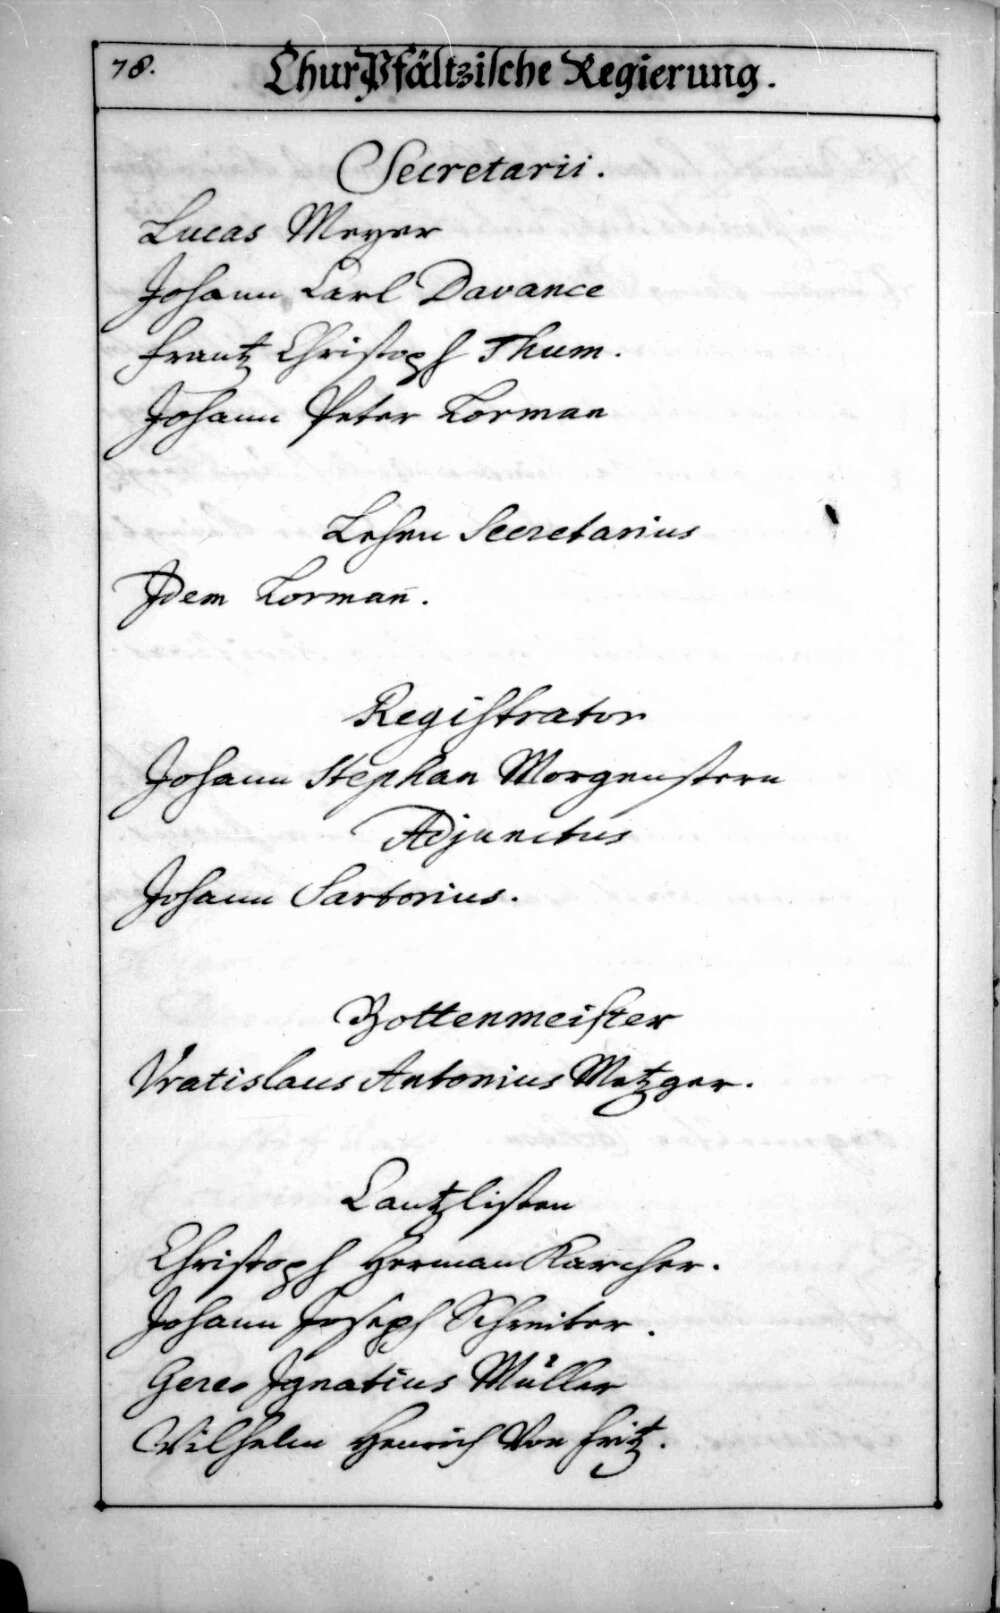 78.
ChurPfältzische Regierung.
Secretarii.
Lucas Meyer
Johann Carl Davance
Frantz Christoph Thum.
Johann Peter Korman
Lehen Secretarius
Idem Kormañ.
Registrator
Johann Stephan Morgenstern
Adjunctus
Johann Sartorius.
Bottenmeister
Vratislaus Antonius Metzger.
Cantzlisten
Christoph Herman Karcher.
Johann Joseph Schreiber.
Ignatius Müller
Wilhelm Henrich Von Fritz.